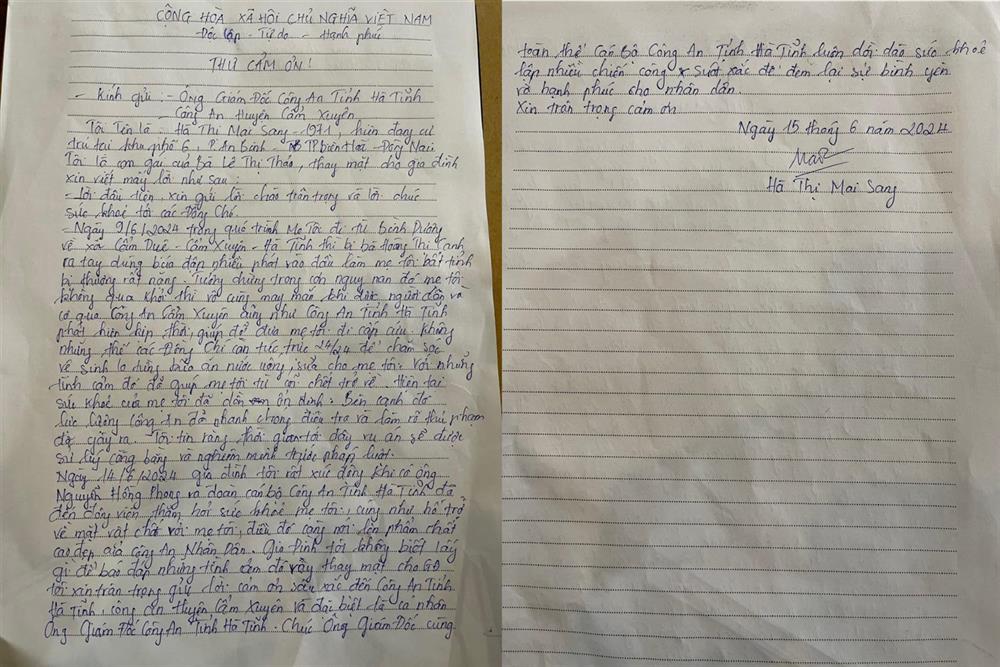 CỘNG HÒA XÃ HỘI CHỦ NGHĨA VIỆT NAM
Độc lập - Tự do - Hạnh phúc
THƯ CẢM ƠN!
- Kính gửi: - Ông Giám Đốc Công An Tỉnh Hà Tĩnh
Công An Huyện Cẩm Xuyên
Tôi Tên là: Hà Thị Mai Sang - 1971, hiện đang cư
trú tại khu phố 6, P. An Bình - TP Biên Hoà - Đồng Nai.
Tôi là con gái của Bà Lê Thị Thảo, thay mặt cho gia đình
xin viết mấy lời như sau:
- Lời đầu tiên, xin gửi lời chào trân trọng và lời chúc
sức khoẻ tới các Đồng Chí.
- Ngày 9/6/2024 trong quá trình Mẹ Tôi đi từ Bình Dương
về xã Cẩm Duệ - Cẩm Xuyên - Hà Tĩnh thì bị bà Hoàng Thị Canh
ra tay dùng búa đập nhiều phát vào đầu làm mẹ tôi bất tỉnh
bị thương rất nặng. Tưởng chừng trong cơn nguy nan đó mẹ tôi
không qua khỏi thì vô cùng may mắn khi được người dân và
cơ quan Công An Cẩm Xuyên cũng như Công An Tỉnh Hà Tĩnh
phát hiện kịp thời, giúp đỡ đưa mẹ tôi đi cấp cứu. Không
những thế các Đồng Chí còn túc trực 24/24 để chăm sóc
vệ sinh lo từng bữa ăn nước uống, sữa cho mẹ tôi. Với những
tình cảm đó đã giúp mẹ tôi từ cõi chết trở về. Hiện tại
sức khoẻ của mẹ tôi đã dần ổn định. Bên cạnh đó
lực lượng Công An đã nhanh chóng điều tra và làm rõ thủ phạm
đã gây ra. Tôi tin rằng thời gian tới đây vụ án sẽ được
sử lý công bằng và nghiêm minh trước pháp luật.
Ngày 14/6/2024 gia đình tôi rất xúc động khi có ông
Nguyễn Hồng Phong và đoàn cán bộ Công An Tỉnh Hà Tĩnh đã
đến động viên thăm hỏi sức khoẻ mẹ tôi, cũng như hỗ trợ
về mặt vật chất với mẹ tôi, điều đó càng nói lên phẩm chất
cao đẹp của Công An Nhân Dân. Gia Đình tôi không biết lấy
gì để báo đáp những tình cảm đó vậy thay mặt cho GĐ
tôi xin trân trọng gửi lời cảm ơn sâu xắc đến Công An Tỉnh
Hà Tĩnh, công an Huyện Cẩm Xuyên và đặc biệt là cá nhân
Ông Giám Đốc Công An Tỉnh Hà Tĩnh. Chúc Ông Giám Đốc cùng
toàn thể Cán Bộ Công An Tỉnh Hà Tĩnh luôn dồi dào sức khoẻ
lập nhiều chiến công xuất xắc để đem lại sự bình yên
và hạnh phúc cho nhân dân.
Xin trân trọng cảm ơn
Ngày 15 tháng 6 năm 2024
Hà Thị Mai Sang